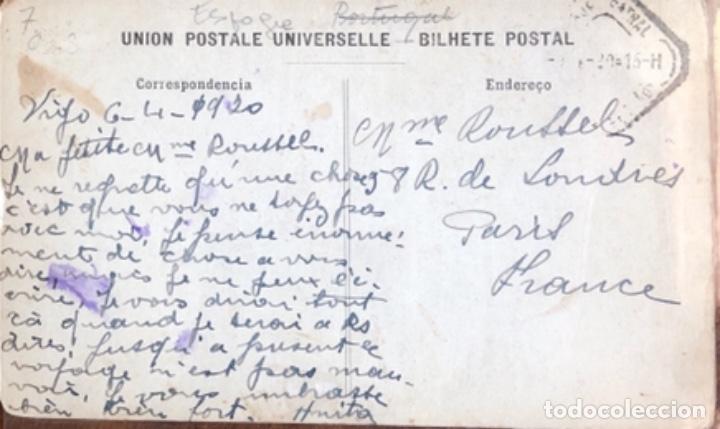 7
Espagne Portugal
UNION POSTALE UNIVERSELLE BILHETE POSTAL
-20 16-H
Correspondencia
Vigo 6-4-1920
Ma petite Mme Roussel.
Je ne regrette qu'une chose
c'est que vous ne soyez pas
avec moi, Je pense enormé-
ment de chose a vous
dire, mais je ne peux l'é-
crire, Je vous dirai tout
ça quand je serai a
Jusqu'a present ce
voyage n'est pas mau-
vais, Je vous embrasse
bièn bièn fort. Anita
Endereço
Mme Roussel
58 R. de Londres
Paris
France
todocoleccion